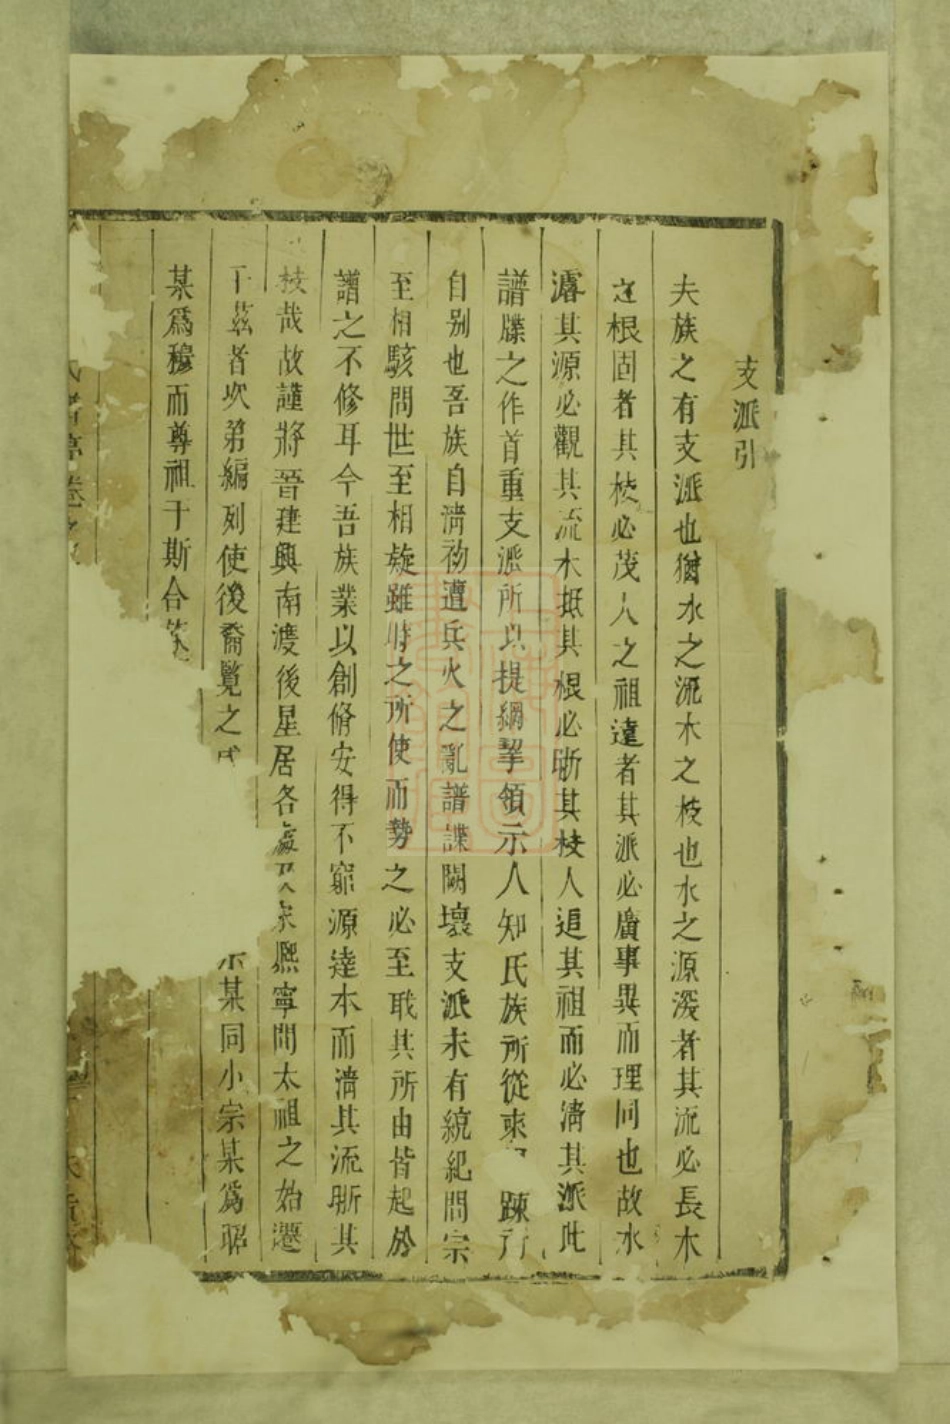 支派引
夫族之有支派也猶水之流木之枝也水之源深者其流必長木
之根固者其枝必茂人之祖遠者其派必廣事異而理同也故水
濬其源必觀其流木抵其根必晰其枝人追其祖而必淸其派此
譜牒之作首重支派所以提綱挈領示人知氏族所從來 踈
自别也吾族自淸初遭兵火之亂譜諜闕壞支派未有統紀問宗
至相駭問世至相疑雖時之所使而勢之必至耿其所由皆起於
譜之不修耳今吾族業以創脩安得不窮源達本而淸其流晰其
枝哉故謹將晉建興南渡後星居各處 宋熙寧間太祖之始遷
于茲者次第編列使後裔覽之 某同小宗某爲昭
某爲穆而尊祖于斯合